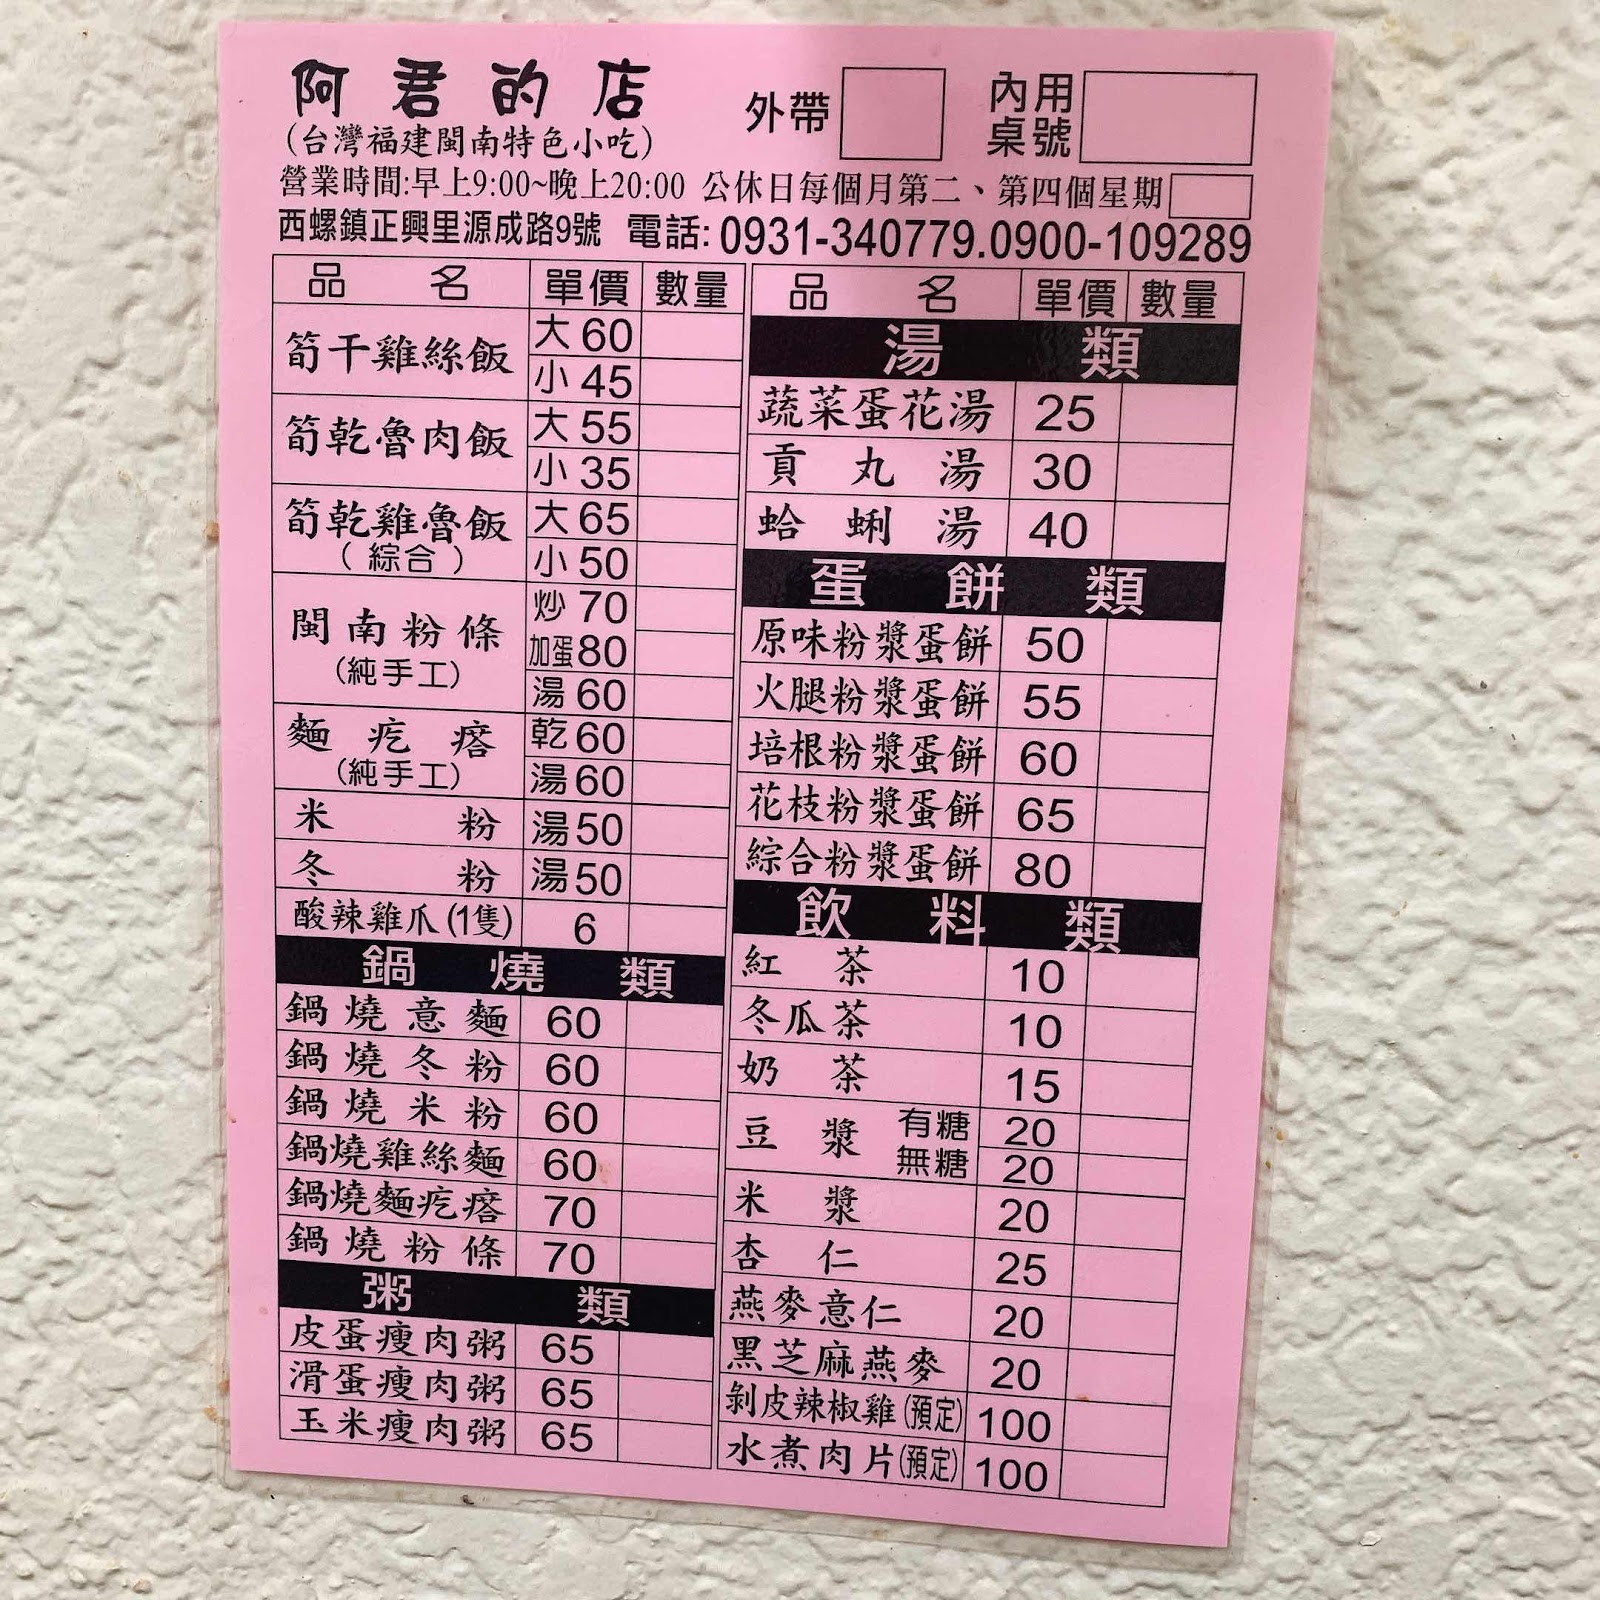 阿君的店
(台灣福建閩南特色小吃)
外帶
內用
桌號
營業時間:早上9:00~晚上20:00 公休日每個月第二、第四個星期
西螺鎮正興里源成路9號 電話:0931-340779.0900-109289
品名 單價 數量
筍干雞絲飯 大60
小45
筍乾魯肉飯 大55
小35
筍乾雞魯飯 大65
(綜合) 小50
閩南粉條 炒70
(純手工) 加蛋80
湯60
麵疙瘩 乾60
(純手工) 湯60
米粉 湯50
冬粉 湯50
酸辣雞爪(1隻) 6
鍋燒類
鍋燒意麵 60
鍋燒冬粉 60
鍋燒米粉 60
鍋燒雞絲麵 60
鍋燒麵疙瘩 70
鍋燒粉條 70
粥類
皮蛋瘦肉粥 65
滑蛋瘦肉粥 65
玉米瘦肉粥 65
品名 單價 數量
湯類
蔬菜蛋花湯 25
貢丸湯 30
蛤蜊湯 40
蛋餅類
原味粉漿蛋餅 50
火腿粉漿蛋餅 55
培根粉漿蛋餅 60
花枝粉漿蛋餅 65
綜合粉漿蛋餅 80
飲料類
紅茶 10
冬瓜茶 10
奶茶 15
豆漿 有糖 20
無糖 20
米漿 20
杏仁 25
燕麥意仁 20
黑芝麻燕麥 20
剝皮辣椒雞(預定) 100
水煮肉片(預定) 100